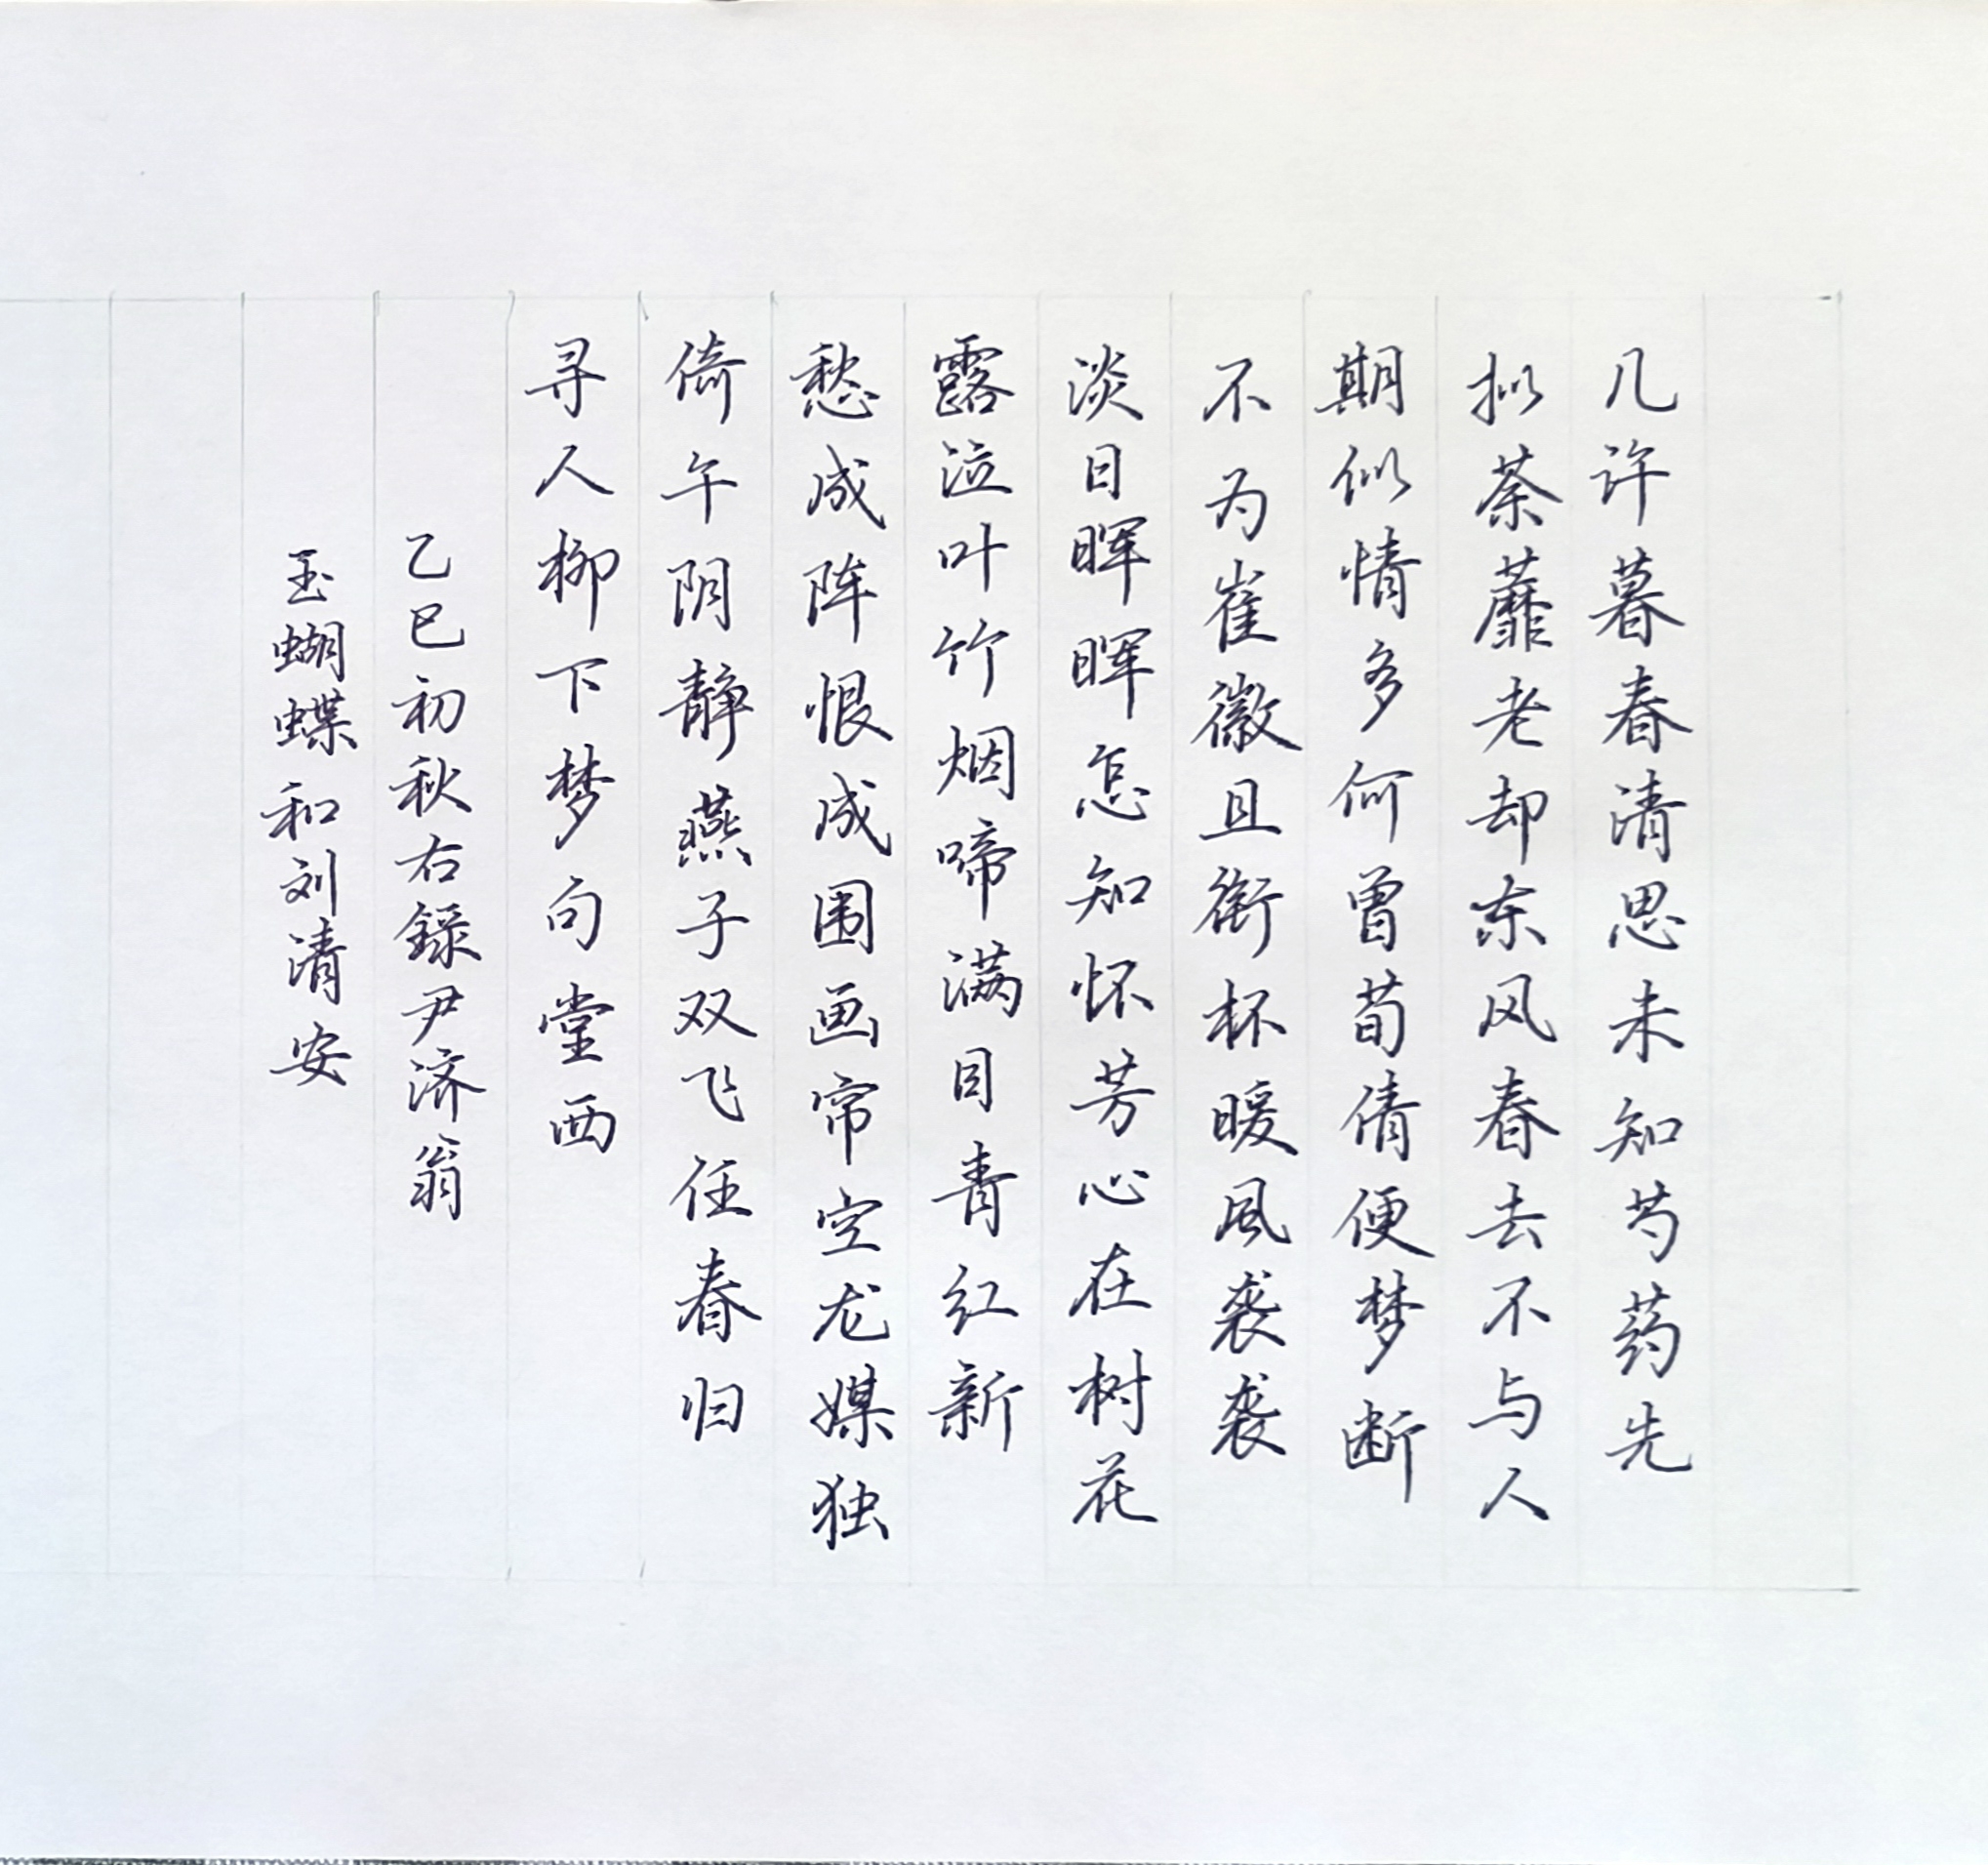 几许暮春清思未知芍药先
拟荼蘼老却东风春去不与人
期似情多何曾荀倩便梦断
不为崔徽且衔杯暖风袭袭
淡日晖晖怎知怀芳心在树花
露泣叶竹烟啼满目青红新
愁成阵恨成围画帘空龙媒独
倚午阴静燕子双飞任春归
寻人柳下梦句堂西
乙巳初秋右錄尹济翁
玉蝴蝶和刘清安